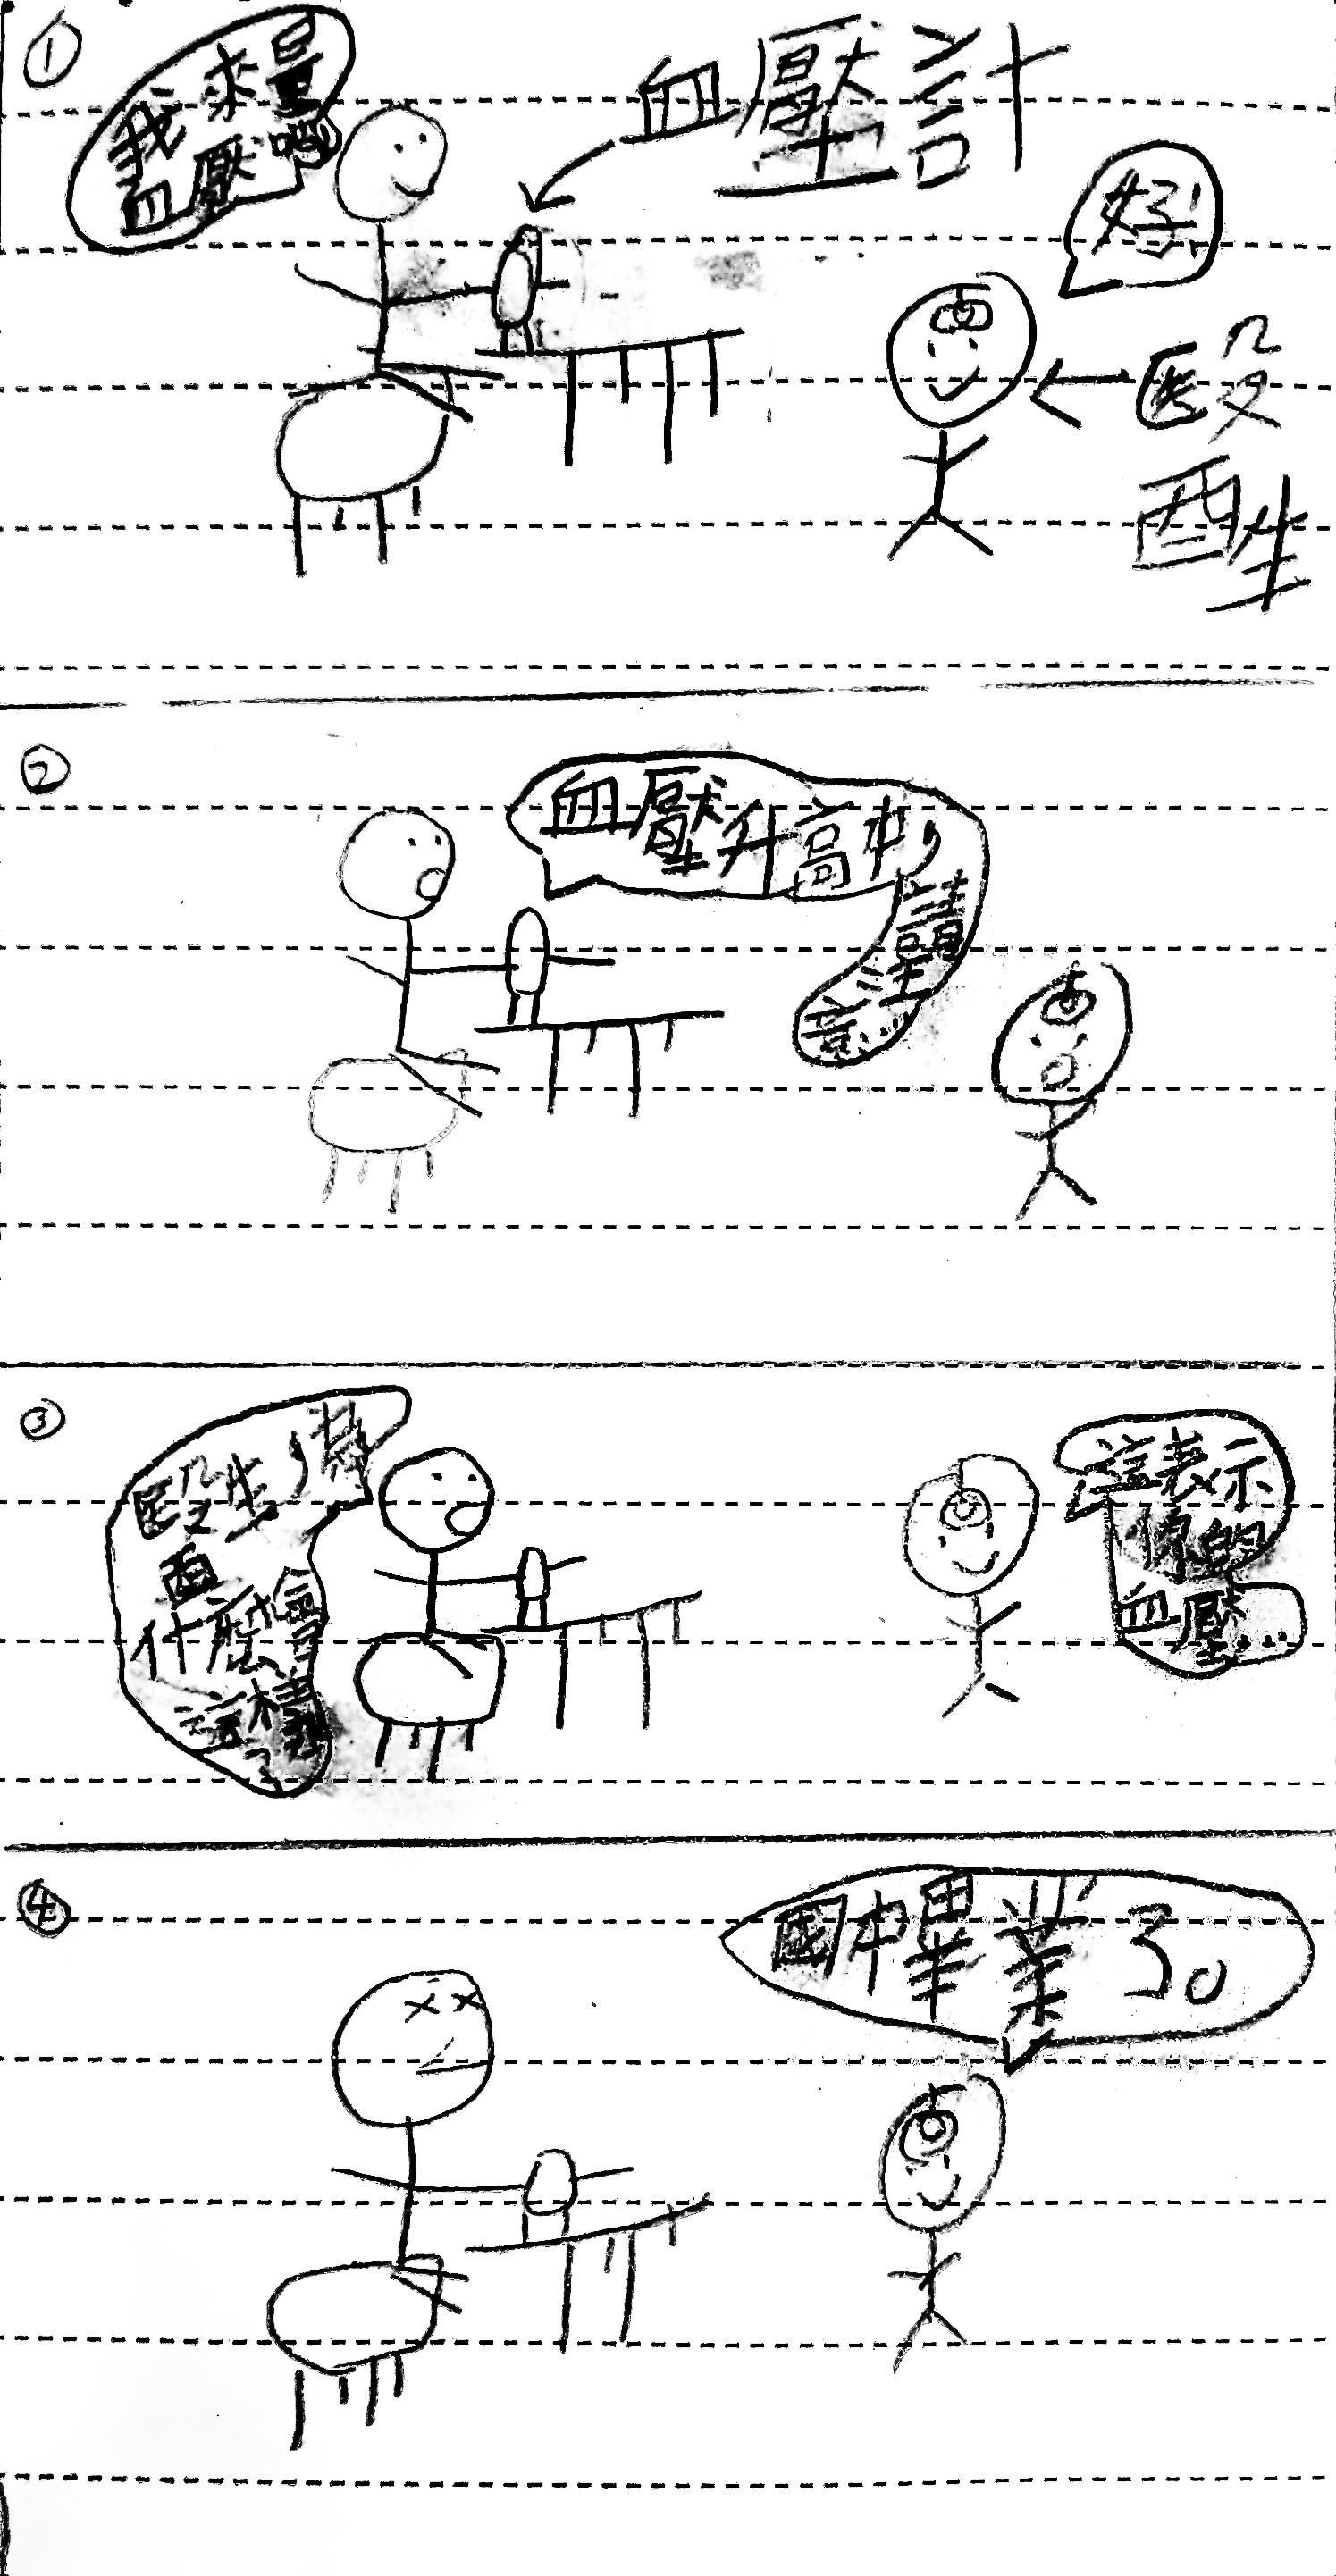 ①
我來量
血壓
血壓計
好!
醫生
②
血壓升高中,
請注
意...
③
醫生,為
什麼會
這樣?
這表示
你的
血壓...
④
國中畢業了。